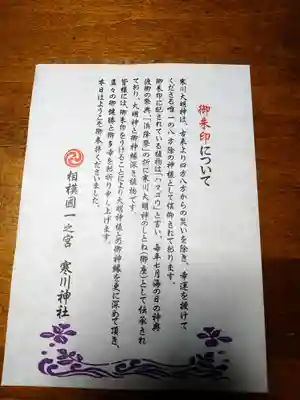 御朱印について
寒川大明神は、古来より八方からの災いを除き、幸運を授けて
くださる唯一の八方除の神様として信仰されて居ります。
御朱印に配されている植物は「ハマゴウ」と言い、毎年七月海の日の神興
渡御の祭典「浜降祭」の折に寒川大明神のしとね(御座)として伝承され
ており、大明神と御神縁深き植物です。
皆様には、御朱印をうけることにより大明神様との御神縁を更に深めて頂き、
益々の御健勝と御多幸を祈り申し上げます。
本日はようこそ御参拝くださいました。
相模國一之宮 寒川神社